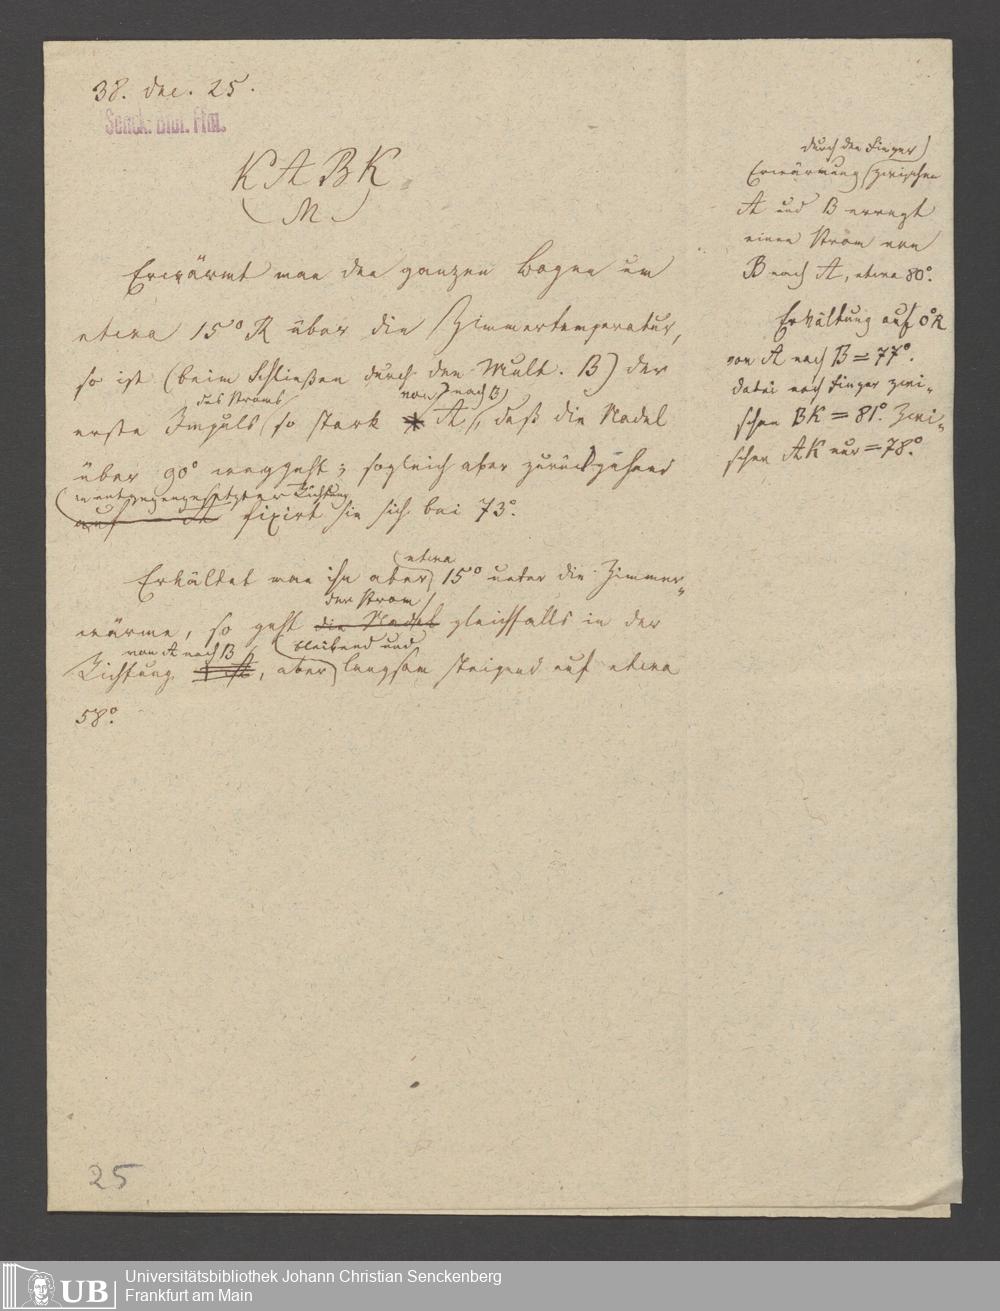 38. dec. 25.
Senck. Bibl. Ffm.
K A B K
M
Erwärmt man den ganzen Bogen um
etwa 15° R über die Zimmertemperatur,
so ist (beim Schließen durch den Mult. B) der
des Stroms von nach B
erste Impuls so stark A, daß die Nadel
über 90° weggeht; sogleich aber zurückgehend
in entgegengesetzter Richtung
auf A fixirt sie sich bei 73°.
etwa
Erkältet man ihn aber 15° unter die Zimmer„
der Strom
wärme, so geht die Nadel gleichfalls in der
von A nach B bleibend und
Richtung, aber langsam steigend auf etwa
58°.
durch den Finger
Erwärmung zwischen
A und B erregt
einen Strom von
B nach A, etwa 80°.
Erkältung auf 0°R
von A nach B = 77°.
dabei nach Finger zwi„
schen BK = 81°. Zwi„
schen AK nur = 78°.
25
UB
Universitätsbibliothek Johann Christian Senckenberg
Frankfurt am Main